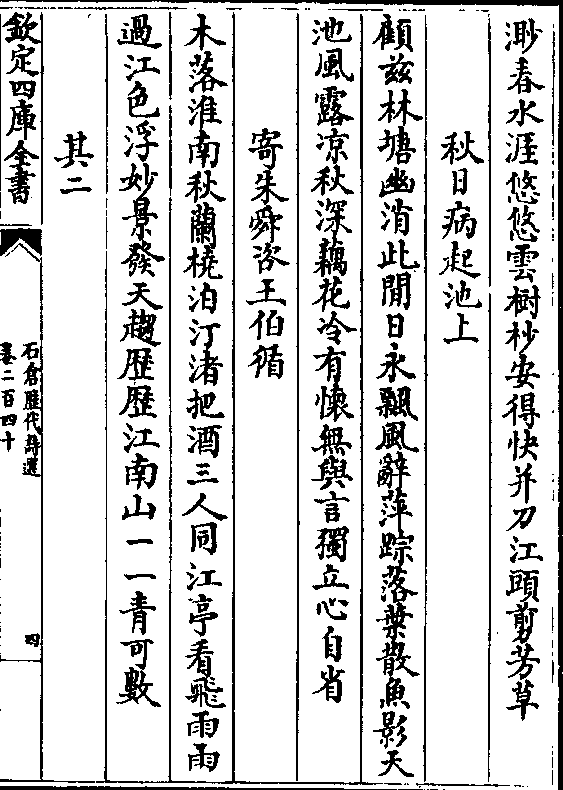 渺春水涯悠悠雲樹杪安得快并刀江頭剪芳草
秋日病起池上
顧兹林塘幽消此閒日永飄風辭萍踪落葉散魚影天
池風露凉秋深藕花冷有懷無與言獨立心自省
寄朱舜咨王伯循
木落淮南秋蘭橈泊汀渚把酒三人同江亭看飛雨雨
過江色浮妙景發天趣歴歴江南山一一青可數
其二
欽定四庫全書
石倉歴代詩選
卷二百四十
四